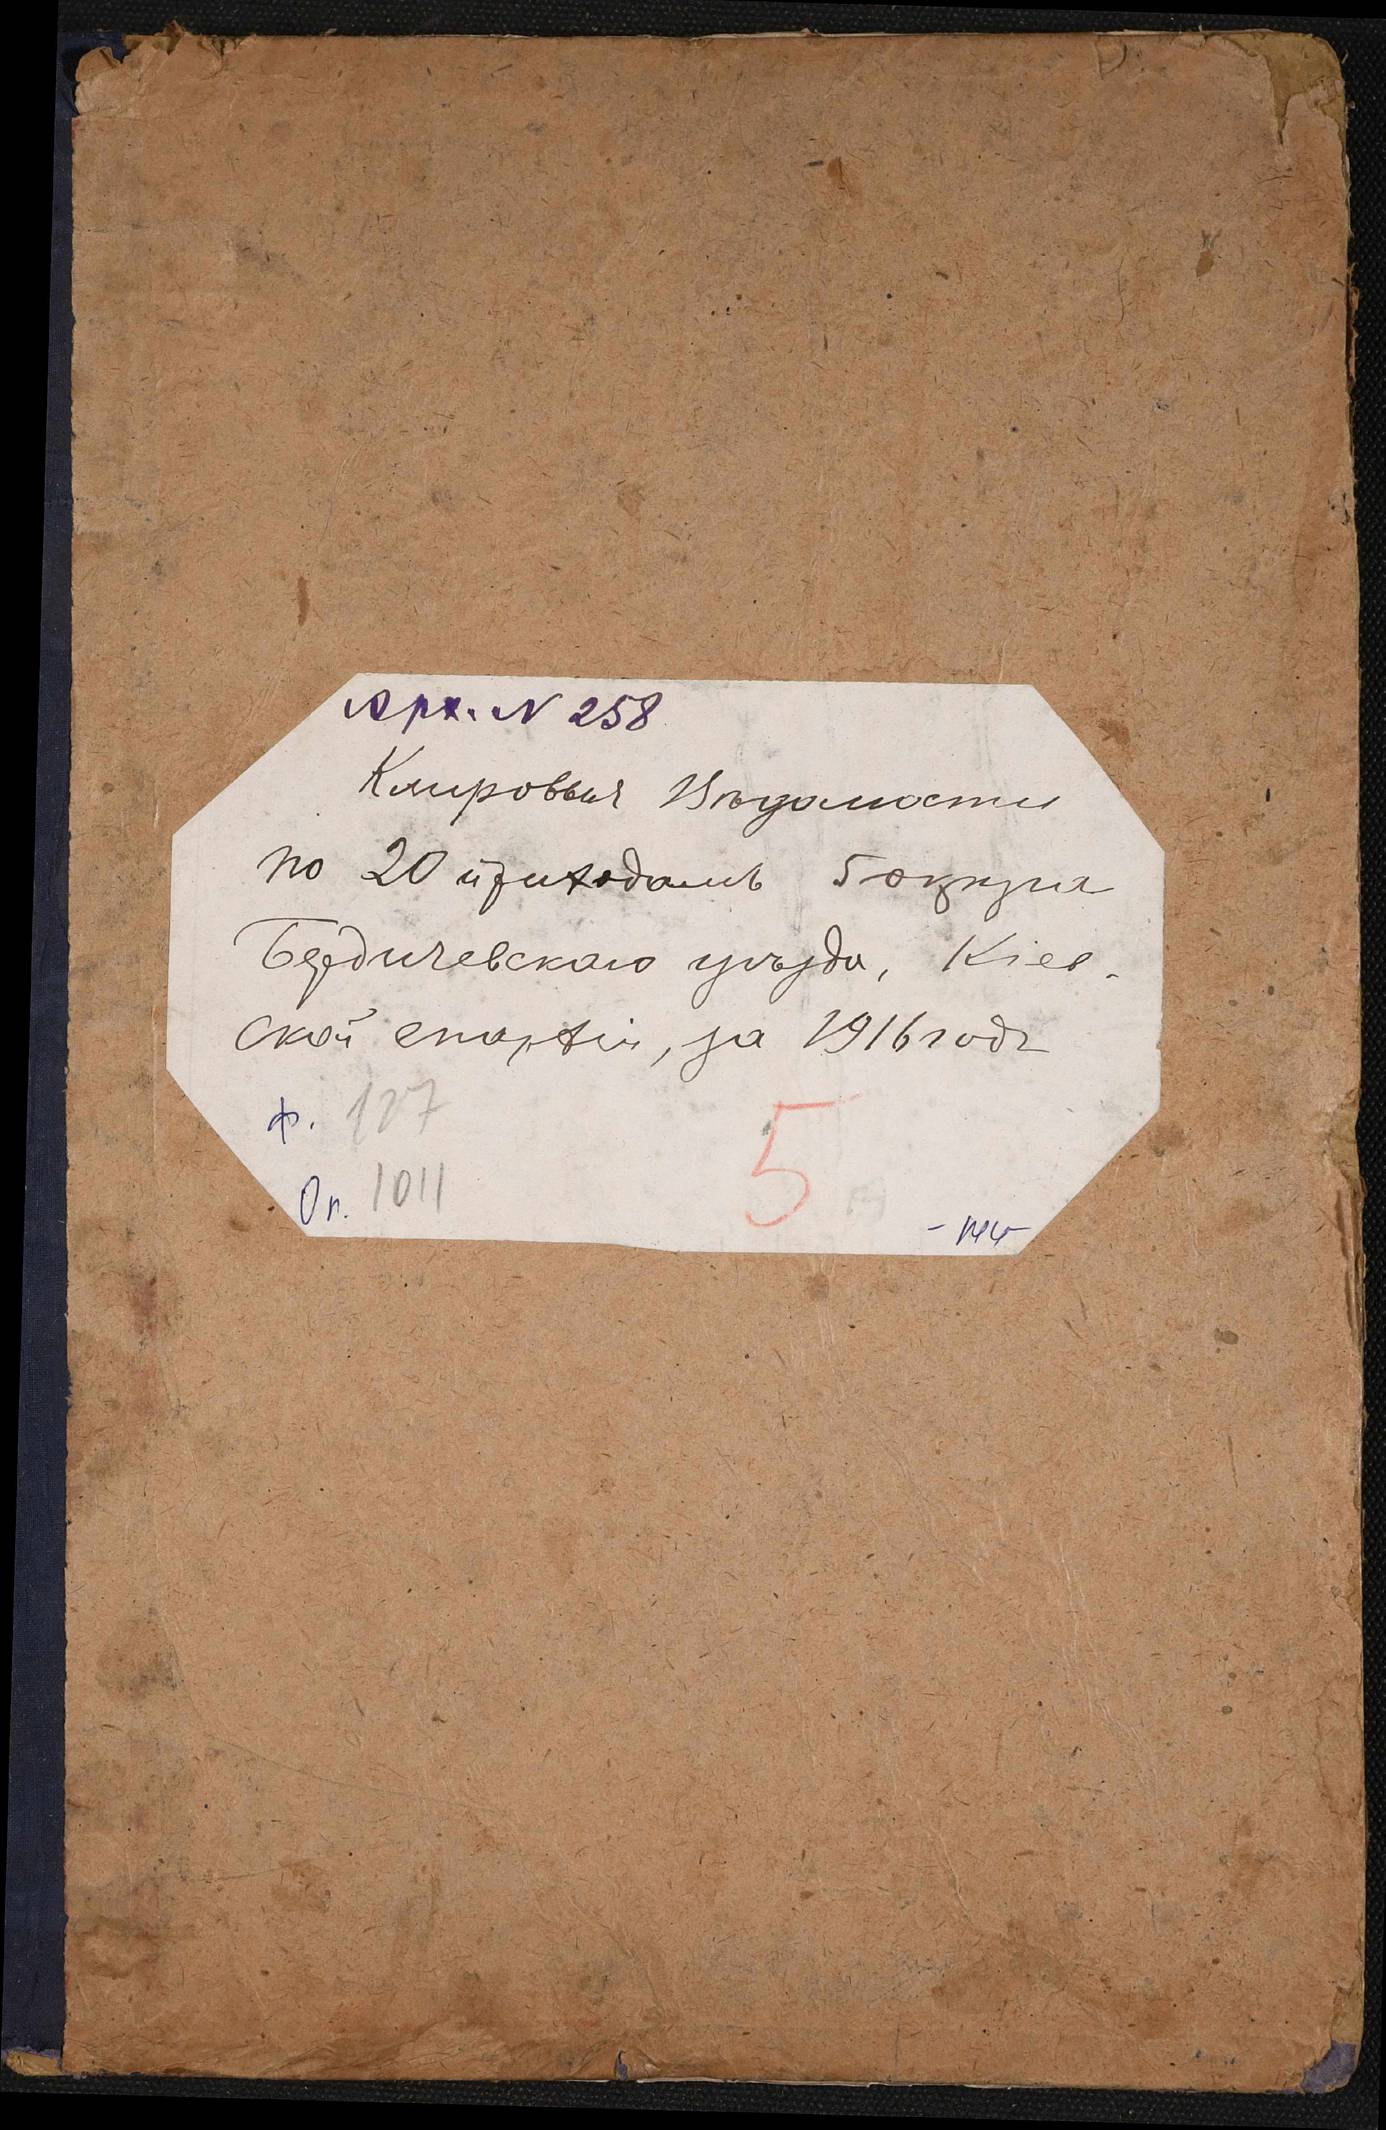 Арх. N 258
Клировыя Вѣдомости
по 20 приходамъ 5 округа
Бердичевскаго уѣзда, Кіев-
ской епархіи, за 1916 годъ
ф. 127
Оп. 1011
5